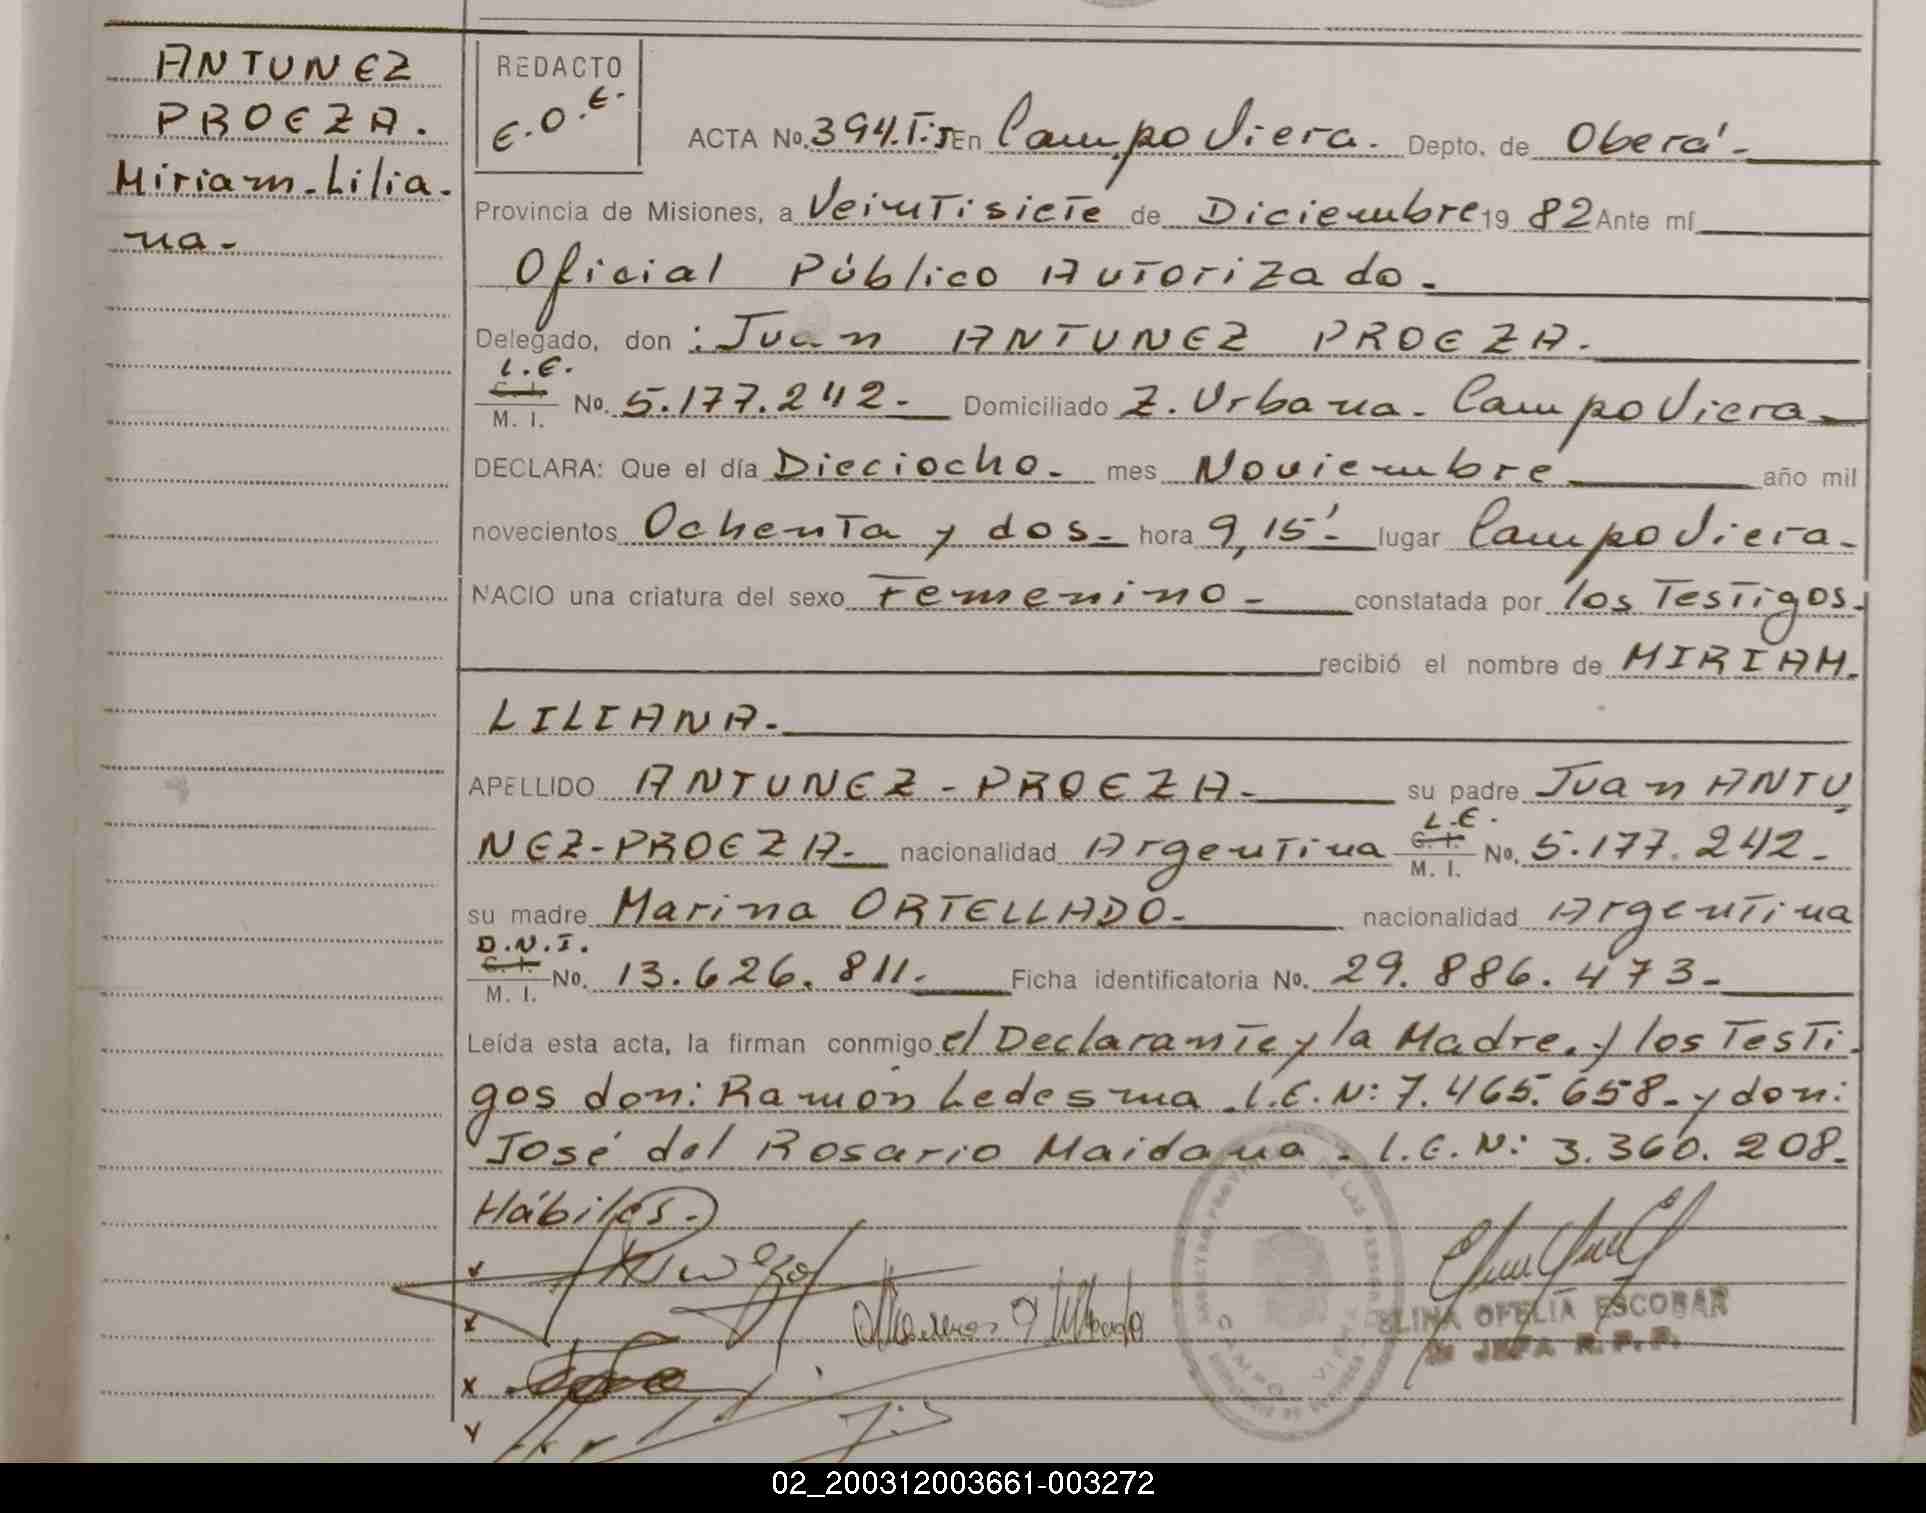 ANTUNEZ
PROEZA.
Miriam-Lilia-
na-
REDACTO
E.O.E.
ACTA No. 394.T:I En Campo Viera. Depto. de Oberá-
Provincia de Misiones, a Veintisiete de Diciembre 19 82 Ante mí
Oficial Público Autorizado-
Delegado, don : Juan ANTUNEZ PROEZA.
L.E.
C. I.
M. I. No. 5.177.242- Domiciliado Z. Urbana. Campo Viera-
DECLARA: Que el día Dieciocho- mes Noviembre año mil
novecientos Ochenta y dos- hora 9,15'- lugar Campo Viera-
NACIO una criatura del sexo Femenino- constatada por los Testigos-
recibió el nombre de MIRIAM-
LILIANA-
APELLIDO ANTUNEZ-PROEZA- su padre Juan ANTU
NEZ-PROEZA- nacionalidad Argentina L.E. C. I. M. I. No. 5.177.242-
su madre Marina ORTELLADO- nacionalidad Argentina
D.N.I.
C. I.
M. I. No. 13.626.811- Ficha identificatoria No. 29.886.473-
Leída esta acta, la firman conmigo el Declarante y la Madre, y los Testi-
gos don: Ramón Ledesma L.E.N: 7.465.658- y don:
José del Rosario Maidana- L.E.N: 3.360.208-
Hábiles.
ELINA OFELIA ESCOBAR
JEFA R.P.P.
CAMPO VIERA
02_200312003661-003272